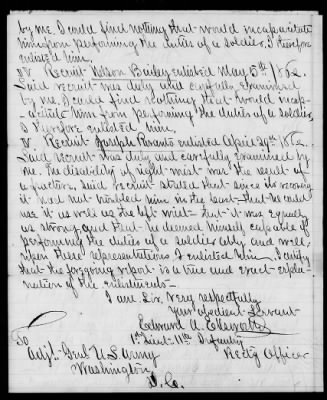 by me, I could find nothing that would incapacitate
him from performing the duties of a soldier, I therefore
enlisted him.
Recruit Nelson Bailey enlisted May 5th 1862.
Said recruit was duly and carefully examined
by me, I could find nothing that would incap-
acitate him from performing the duties of a soldier,
I therefore enlisted him.
Recruit Joseph enlisted April 29th 1862.
Said recruit was duly and carefully examined by
me. The disability of right wrist was the result of
a fracture, said recruit stated that since its recovery
it had not troubled him in the least—that he could
use it as well as the left wrist—that it was equally
as strong and that he deemed himself capable of
performing the duties of a soldier ably and well,
upon these representations I enlisted him, I certify
that the foregoing report is a true and exact expla-
nation of the enlistments—
I am Sir, Very respectfully
Your obedient Servant
Edward A. Ellsworth
1st Lieut 11th Infantry
To Rectg Officer
Adjt. Genl U.S. Army
Washington
D.C.